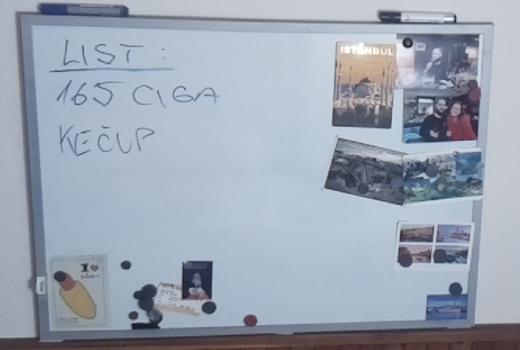 LIST :
165 CIGA
KEČUP
ISTANBUL
I